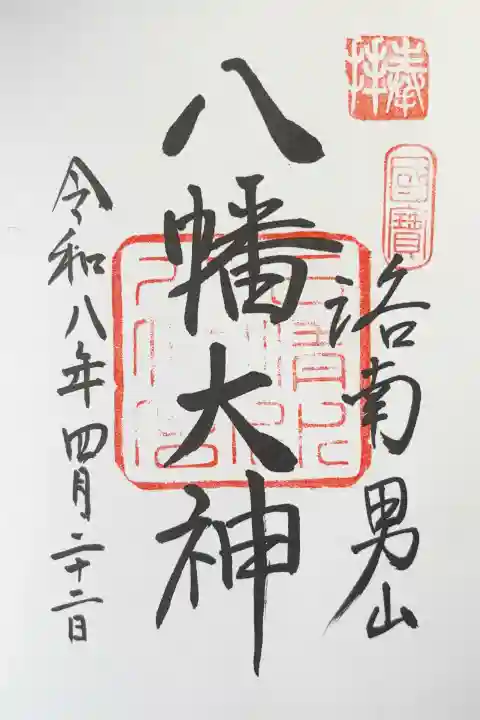 奉拝
國寶
洛南男山
八幡大神
令和八年四月二十二日